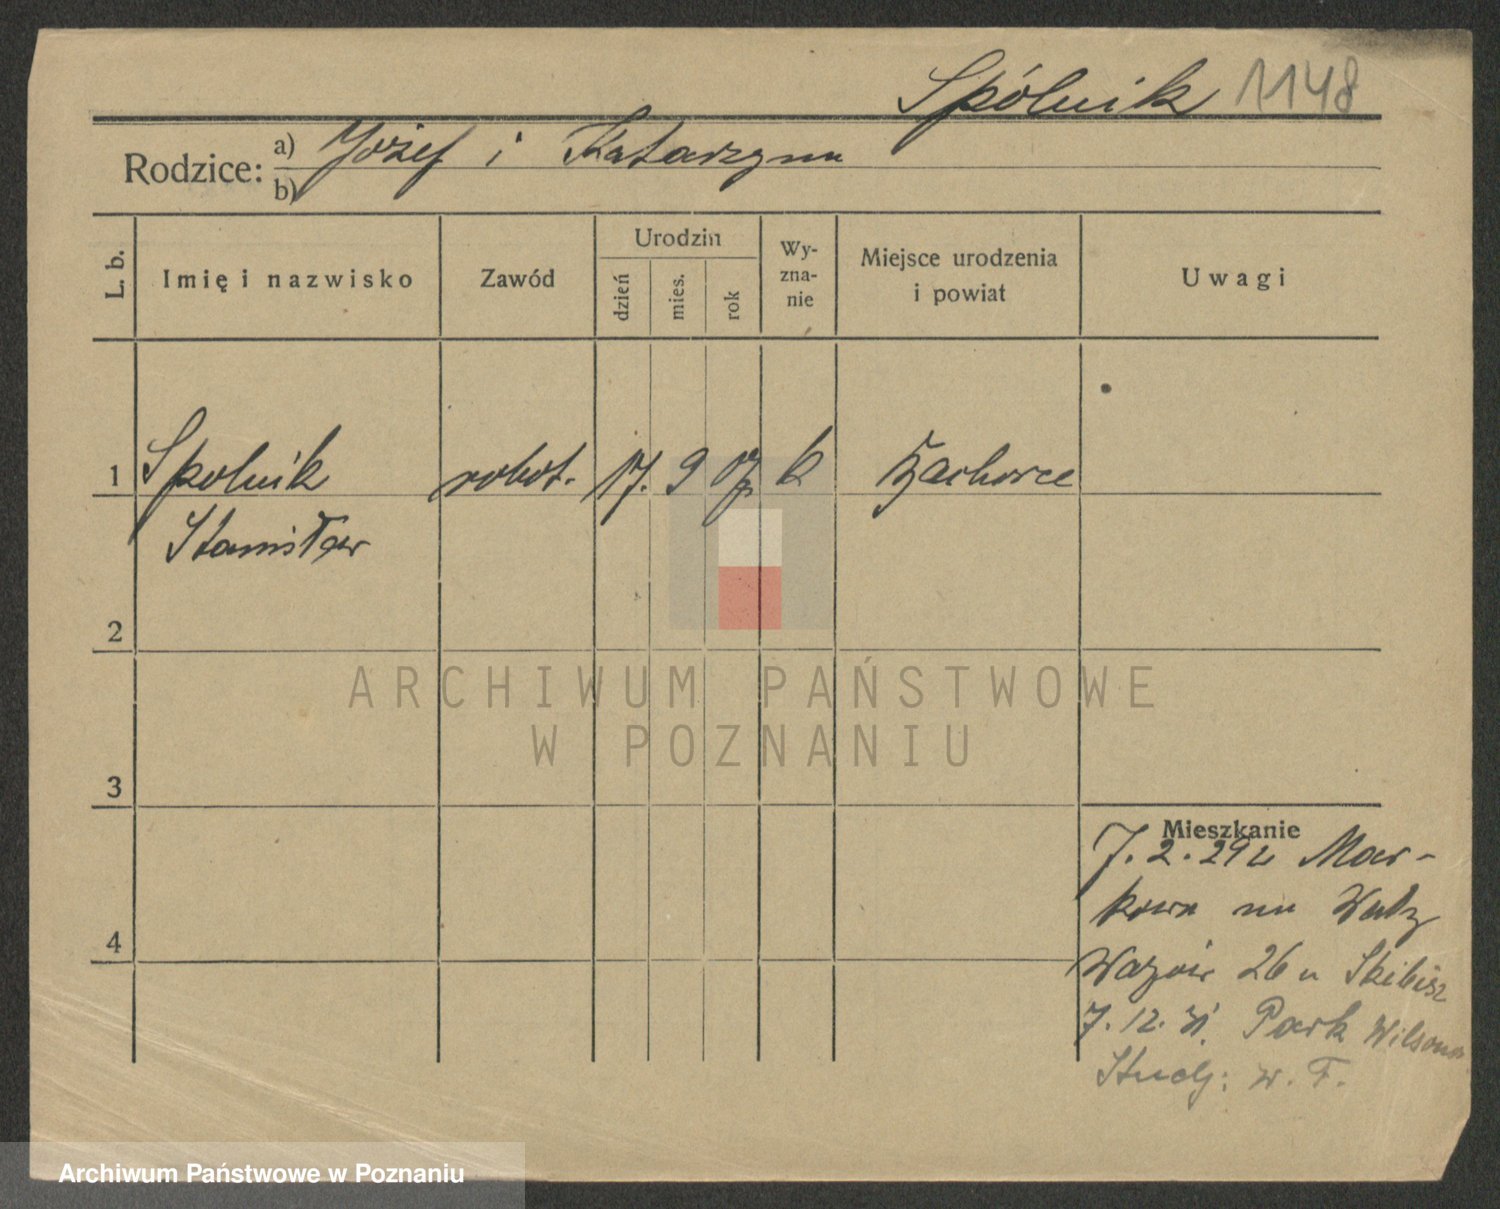 Spólnik 1148
Rodzice: a) Józef i Katarzyna
b)
L. b.
Imię i nazwisko
Zawód
Urodzin
dzień
mies.
rok
Wy-
zna-
nie
Miejsce urodzenia
i powiat
Uwagi
1 Spolnik robot. 17. 9 07 k Zachorce
Stanisław
2
3
4
Mieszkanie
7.2.29 Mar-
26 u Skibisz
7.12.31. Park Wilsona
Studj: w. F.
ARCHIWUM PAŃSTWOWE
W POZNANIU
Archiwum Państwowe w Poznaniu